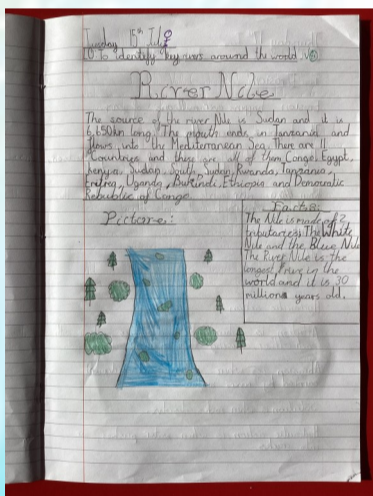 Tuesday 15th July
LO to identify key rivers around the world.
River Nile
The source of the river Nile is Sudan and it is
6,650km long. The mouth ends in Tanzania and
flows into the Mediterranean Sea. There are 11
Countries and these are all of them Congo, Egypt,
Kenya, Sudan, South Sudan, Rwanda, Tanzania,
Eritrea, Uganda, Burundi, Ethiopia and Democratic
Republic of Congo.
Picture:
Facts:
The Nile is made of 2
tributaries: The White
Nile and the Blue Nile.
The River Nile is the
longest river in the
world and it is 30
millions years old.